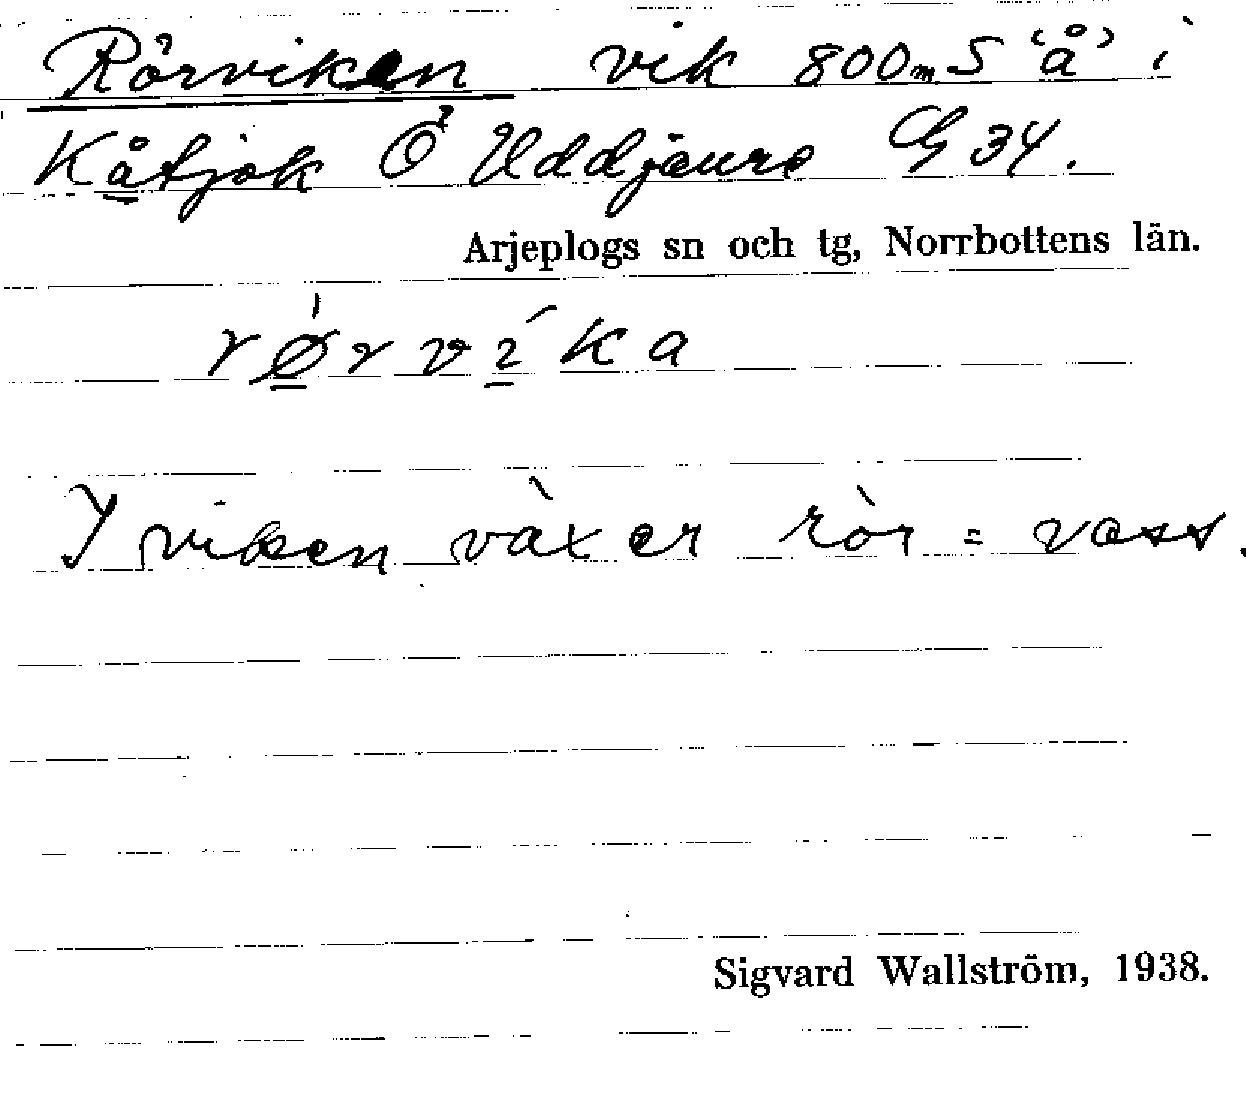 Rörviken vik 800m S 'å' i
Kåtjok Ö Uddjaure G 34.
Arjeplogs sn och tg, Norrbottens län.
rø̱rvi̱ka
I viken växer rör = vass.
Sigvard Wallström, 1938.